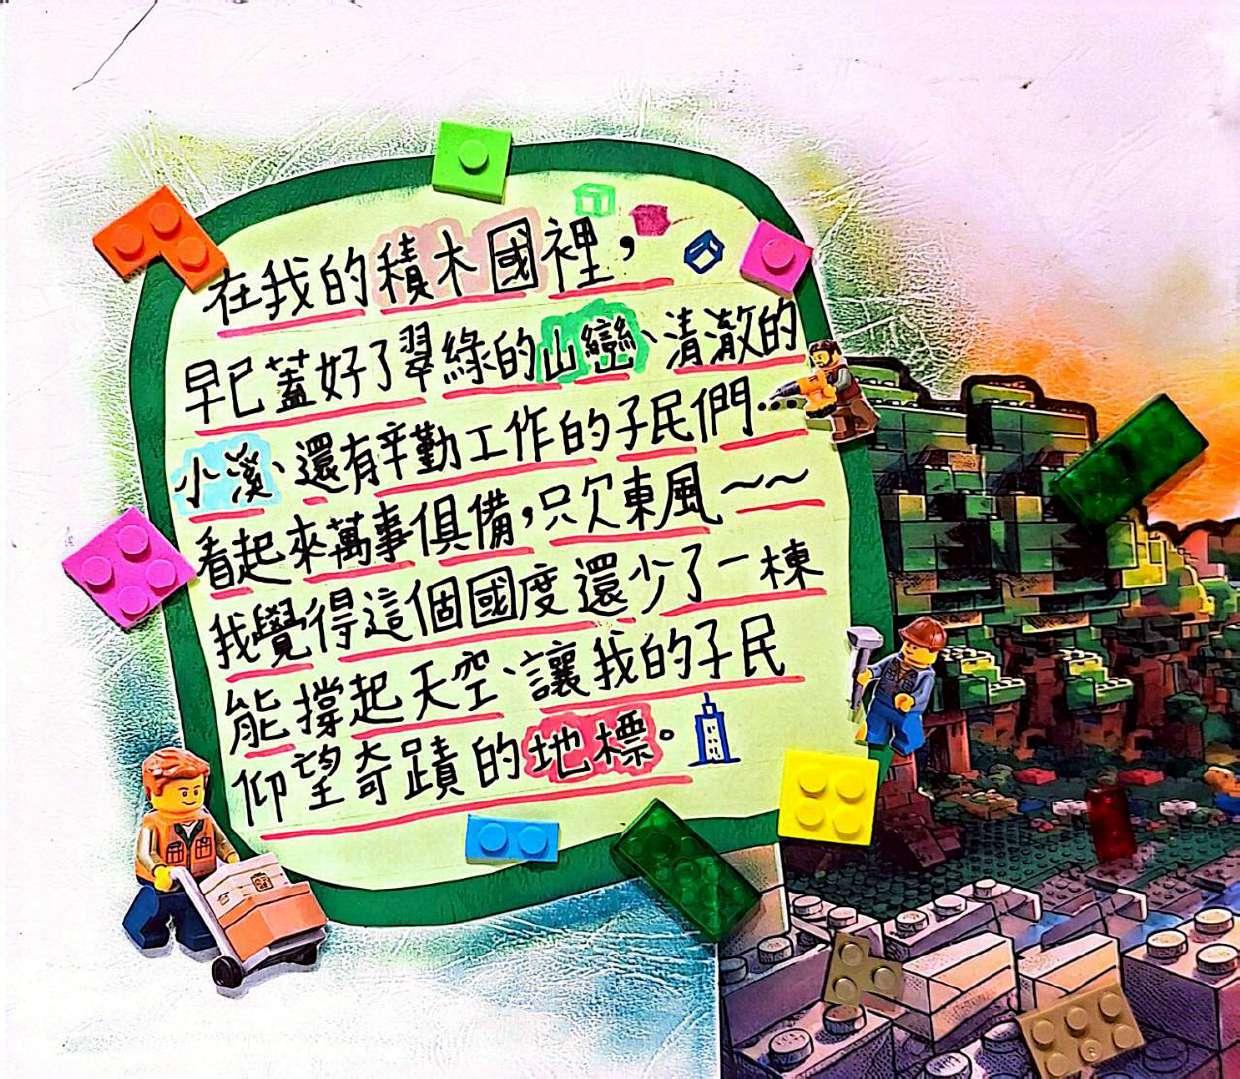 在我的積木國裡，
早已蓋好了翠綠的山巒、清澈的
小溪、還有辛勤工作的子民們…
看起來萬事俱備，只欠東風～～
我覺得這個國度還少了一棟
能撐起天空、讓我的子民
仰望奇蹟的地標。